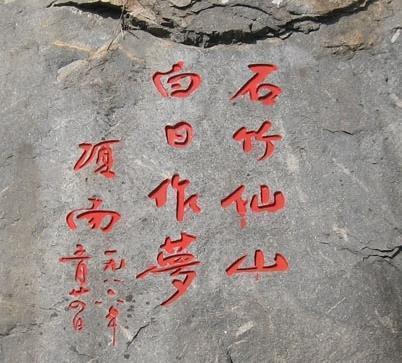 石竹仙山
白日作夢
项南
一九八八年
五月廿四日